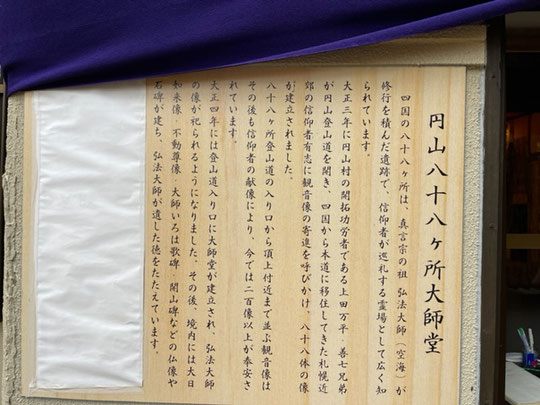 円山八十八ヶ所大師堂
四国の八十八ヶ所は、真言宗の祖 弘法大師(空海)が
修行を積んだ遺跡で、信仰者が巡礼する霊場として広く知
られています。
大正三年に円山村の開拓功労者である上田万平・善七兄弟
が円山登山道を開き、四国から本道に移住してきた札幌近
郊の信仰者有志に観音像の寄進を呼びかけ、八十八体の像
が建立されました。
八十八ヶ所登山道の入り口から頂上付近まで並ぶ観音像は
その後も信仰者の献像により、今では二百像以上が奉安さ
れています。
大正四年には登山道入り口に大師堂が建立され、弘法大師
の像が祀られるようになりました。その後、境内には大日
如来像・不動尊像・大師いろは歌碑・開山碑などの仏像や
石碑が建ち、弘法大師が遺した徳をたたえています。